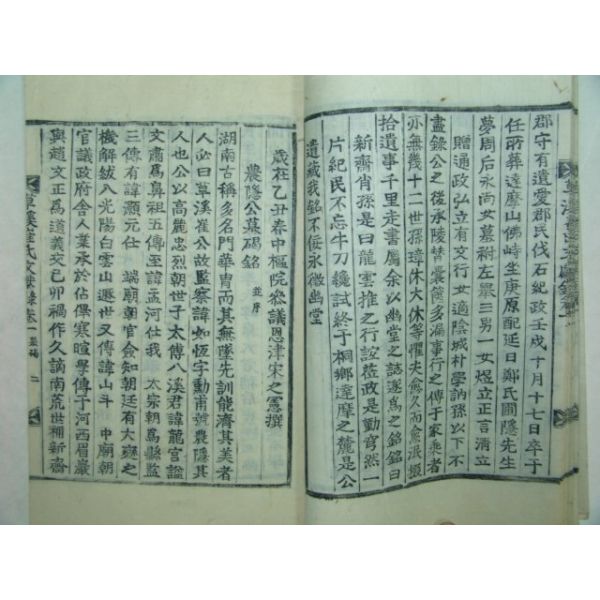 郡守有遺愛郡民伐石紀政壬戌十月十七日卒于
任所葬達摩山佛峙坐庚原配延日鄭氏圃隱先生
夢周后永尚女墓祔左擧三男一女煜立正言清立
贈通政弘立有文行女適陰城朴學訥孫以下不
盡錄公之後承陵替囊篋多漏事行之傳于家乘者
亦無幾十二世孫璋休大休等懼夫愈久而愈泯掇
拾遺事千里走書屬余以幽堂之誌遂爲之銘銘曰
新齋肖孫是曰龍雲推之行誼莅政是勤穹然一
片紀民不忘牛刀纔試終于桐鄉達摩之麓是公
遺藏我銘不佞永徵幽堂
歲在乙丑春中樞院叅議恩津宋之憲撰
農隱公墓碣銘 並序
湖南古稱多名門華胄而其無墜先訓能濟其美者
人必曰草溪崔公故監察諱如恆字勳甫號農隱其
人也公以高麗忠烈朝世子太傅八溪君諱龍宮謚
文肅爲鼻祖五傳至諱孟河仕我 太宗朝爲縣監
三傳有諱顥元仕 端廟朝官僉知朝廷有大難之
機解紱入光陽白雲山遯世又傳諱山斗 中廟朝
官議政府舍人業承於佔俾寒暄學傳于河西眉巖
與趙文正爲道義交己卯禍作久謫南荒世稱新齋
草溪崔氏文獻錄 卷一 並補 二